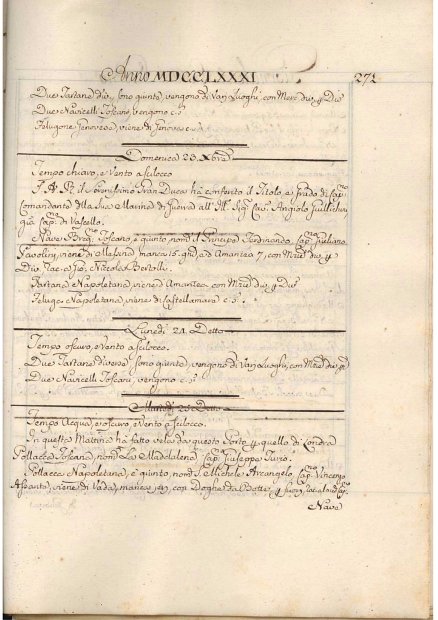 Anno MDCCLXXXI 271
Due Tartane div. sono giunte, vengono di Van Luoghi, con Merc. div. p Div.
Due Navicelli Toscani, vengono c.s.
Felugone Genovese, viene di Genova c.s.
Domenica 23. Xbre
Tempo chiaro, e Vento a Scilocco
S. A. R. il Serenissimo Gran Duca ha conferito il Titolo, e grado di Cap.no
Comandante della Sua Marina di Guerra all' Ill. Sig. Cav. Angiolo
già Cap. di Vascello.
Nave Toscano, è giunto, nom. il Principe Ferdinando Cap.no Giuliano
viene di Messina manca 15. g. e da Amantea 7, con Merc. div. p
Div. Rac. a Nicola Bertolli.
Tartana Napoletana, viene d'Amantea con Merc. div. p Div.
Feluga Napoletana, viene di Castellamare c.s.
Lunedì 24. Detto
Tempo oscuro, e Vento a Scilocco.
Due Tartane diverse sono giunte, vengono di Van Luoghi, con Merc. div. p d.
Due Navicelli Toscani, vengono c.s.
Martedì 25. Detto
Tempo Acqua, e oscuro, e Vento a Scilocco.
In questa Mattina ha fatto vela da questo Porto p quello di Londra
Pollacca Toscana, nom. La Maddalena Cap. Giuseppe
Pollacca Napoletana, è giunta, nom. S. Michele Arcangelo, Cap.no Vincenzo
viene di Vada, manca con Doghe da Botte, p
Nave